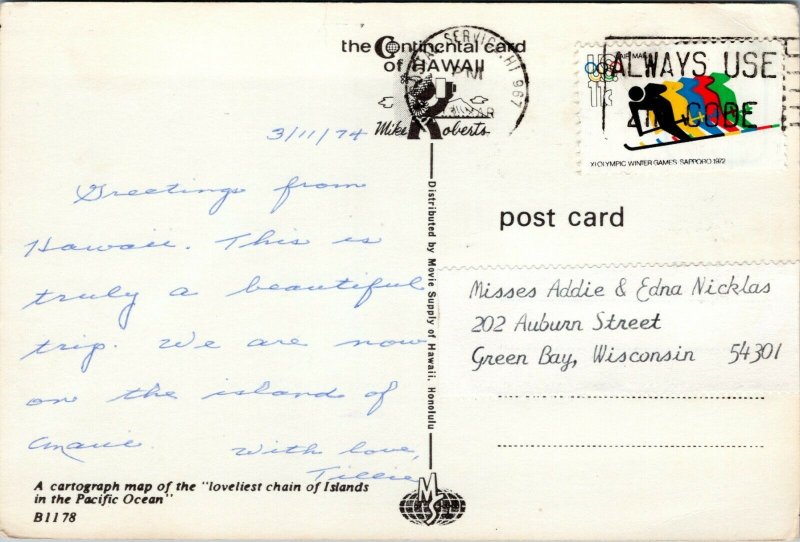 the Continental card
of HAWAII
Mike Roberts
SERVICE HI 967
PM
MAR
ALWAYS USE
ZIP CODE
US AIR MAIL
11c
XI OLYMPIC WINTER GAMES SAPPORO 1972
3/11/74
Greetings from
Hawaii. This is
truly a beautiful
trip. We are now
on the island of
Maui.
With love,
Tillie
A cartograph map of the "loveliest chain of Islands
in the Pacific Ocean"
B1178
Distributed by Movie Supply of Hawaii, Honolulu
MS
post card
Misses Addie & Edna Nicklas
202 Auburn Street
Green Bay, Wisconsin 54301